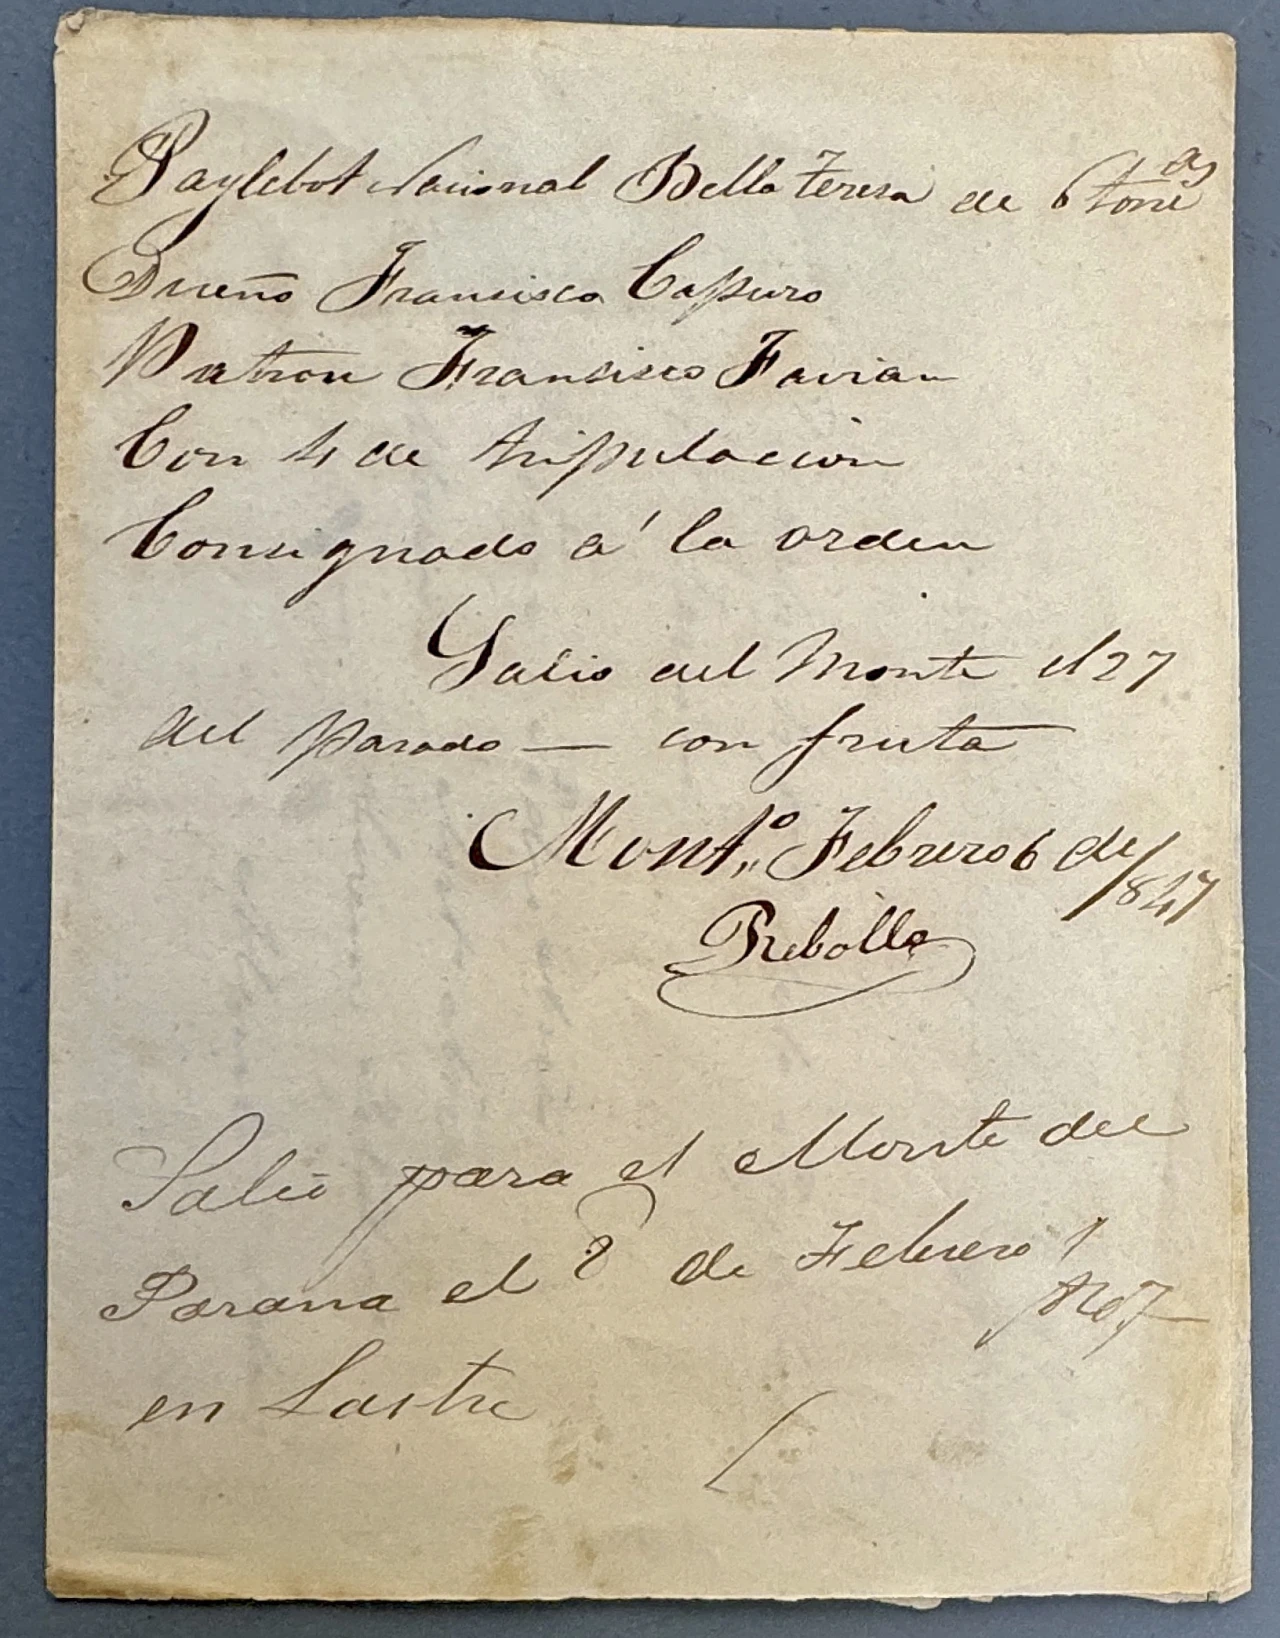 Paylebot Nacional Bella Teresa de 6 tone as
Dueño Fransisco Capuro
Patron Fransisco Favian
Con 4 de tripulacion
Consignado á la orden
Salio del Monte el 27
del pasado — con fruta
Mont.º Febrero 6 de /847
Rebollo
Salió para el Monte del
Parana el 8 de Febrero
en Lastre